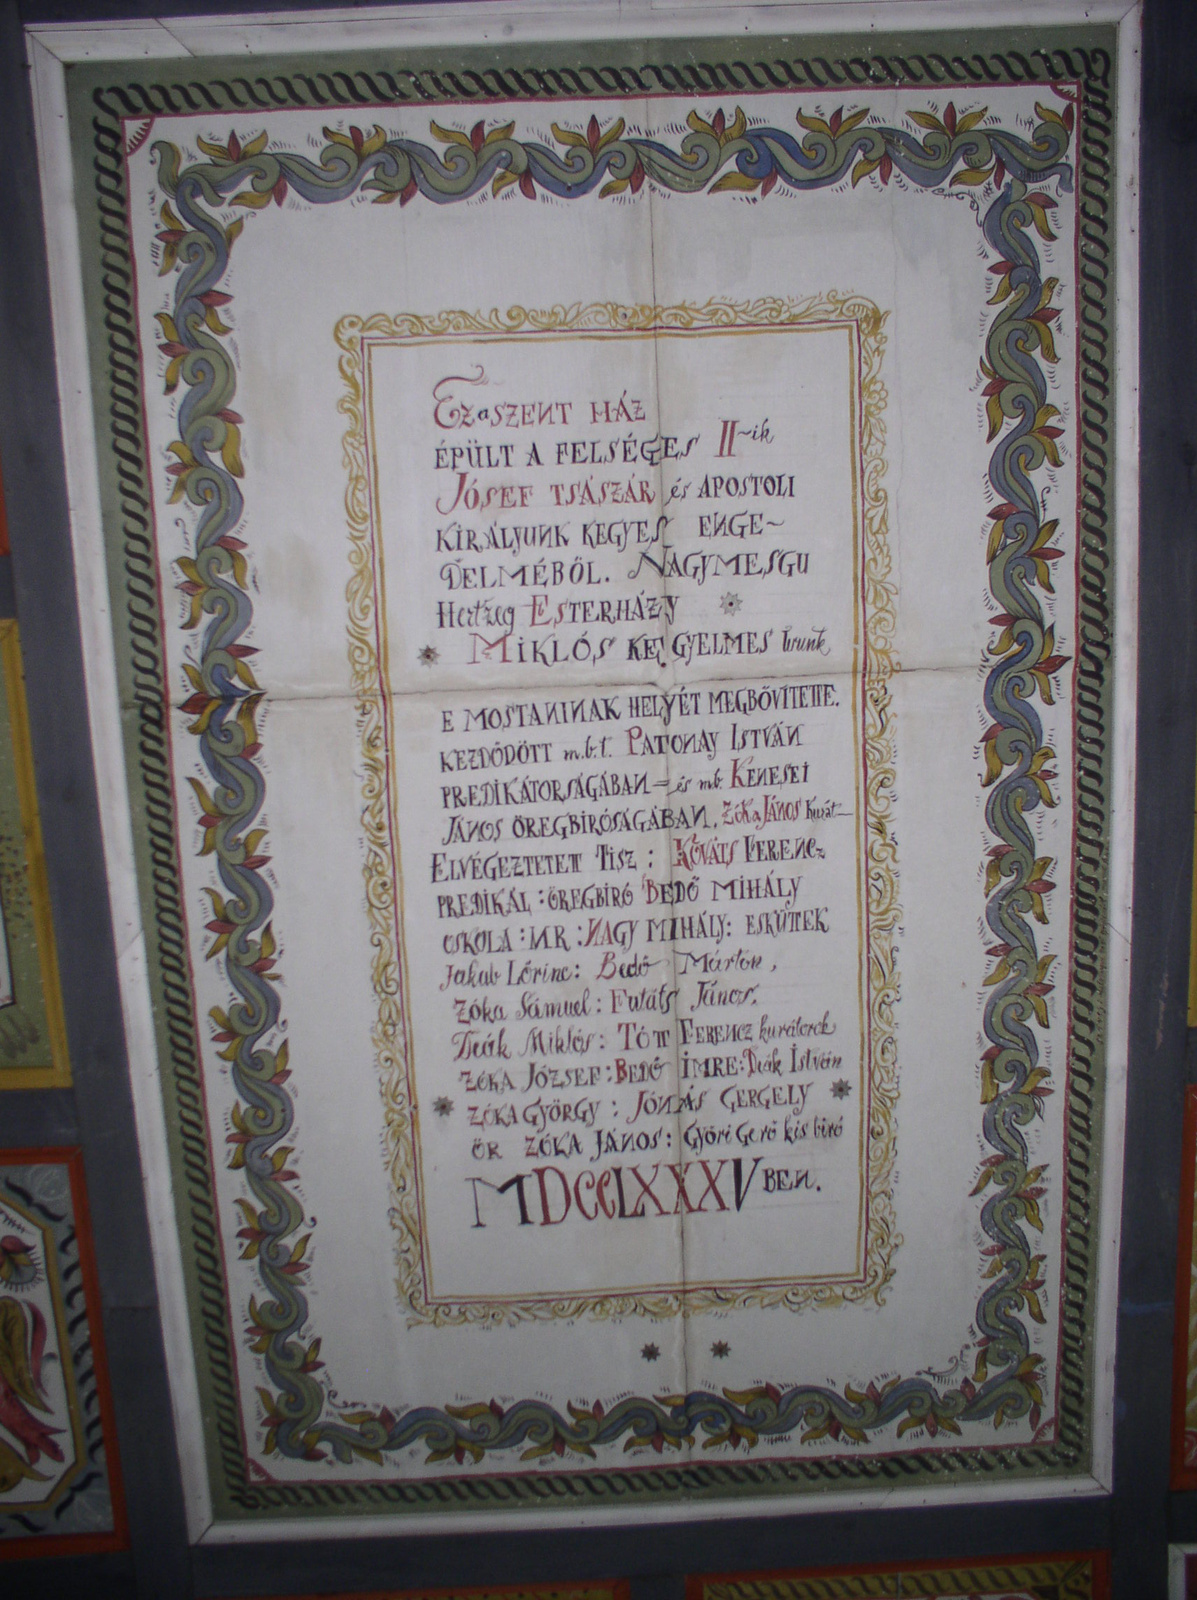 Ez a SZENT HÁZ
ÉPÜLT A FELSÉGES II~ik
JÓSEF TSÁSZÁR és APOSTOLI
KIRÁLYUNK KEGYES ENGE~
DELMÉBŐL. NAGYMESGU
Hertzeg ESTERHÁZY
MIKLÓS KEGYELMES Urunk
E MOSTANINAK HELYÉT MEGBŐVITETTE.
KEZDŐDÖTT m.b.t. PATONAY ISTVÁN
PREDIKÁTORSÁGÁBAN = és mb. KENESEI
JÁNOS ÖREGBIRÓSÁGÁBAN. ZÓKA JÁNOS Kurát—
ELVÉGEZTETETT TISZ: KŐVÁTS FERENCZ
PREDIKÁL: ÖREGBIRÓ BEDŐ MIHÁLY
OSKOLA: MR: NAGY MIHÁLY: ESKÜTTEK
Jakab Lőrinc: Bedő Márton,
Zóka Sámuel: János.
Deák Miklós: TÓTT FERENCZ kurátorok
ZÓKA JÓZSEF: BEDŐ IMRE: Deák István
ZÓKA GYÖRGY: JÓNÁS GERGELY
ŐR ZÓKA JÁNOS: Győri Gerő kis biró
MDCCLXXXV BEN.